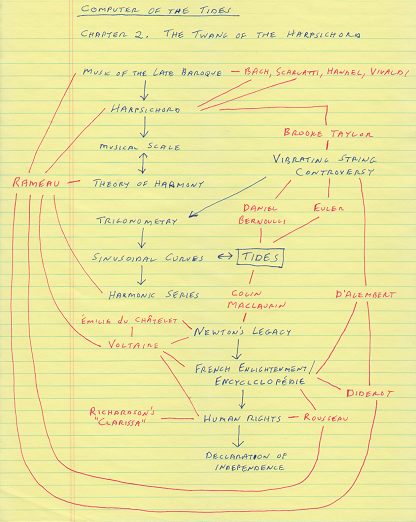 COMPUTER OF THE TIDES
CHAPTER 2. THE TWANG OF THE HARPSICHORD
MUSIC OF THE LATE BAROQUE — BACH, SCARLATTI, HANDEL, VIVALDI
HARPSICHORD
BROOKE TAYLOR
MUSICAL SCALE
VIBRATING STRING
CONTROVERSY
RAMEAU — THEORY OF HARMONY
DANIEL
BERNOULLI
EULER
TRIGONOMETRY
SINUSOIDAL CURVES
TIDES
HARMONIC SERIES
COLIN
MACLAURIN
D'ALEMBERT
ÉMILIE DU CHÂTELET
NEWTON'S LEGACY
VOLTAIRE
FRENCH ENLIGHTENMENT/
ENCYCLCLOPÉDIE
DIDEROT
RICHARDSON'S
"CLARISSA"
HUMAN RIGHTS — ROUSSEAU
DECLARATION OF
INDEPENDENCE